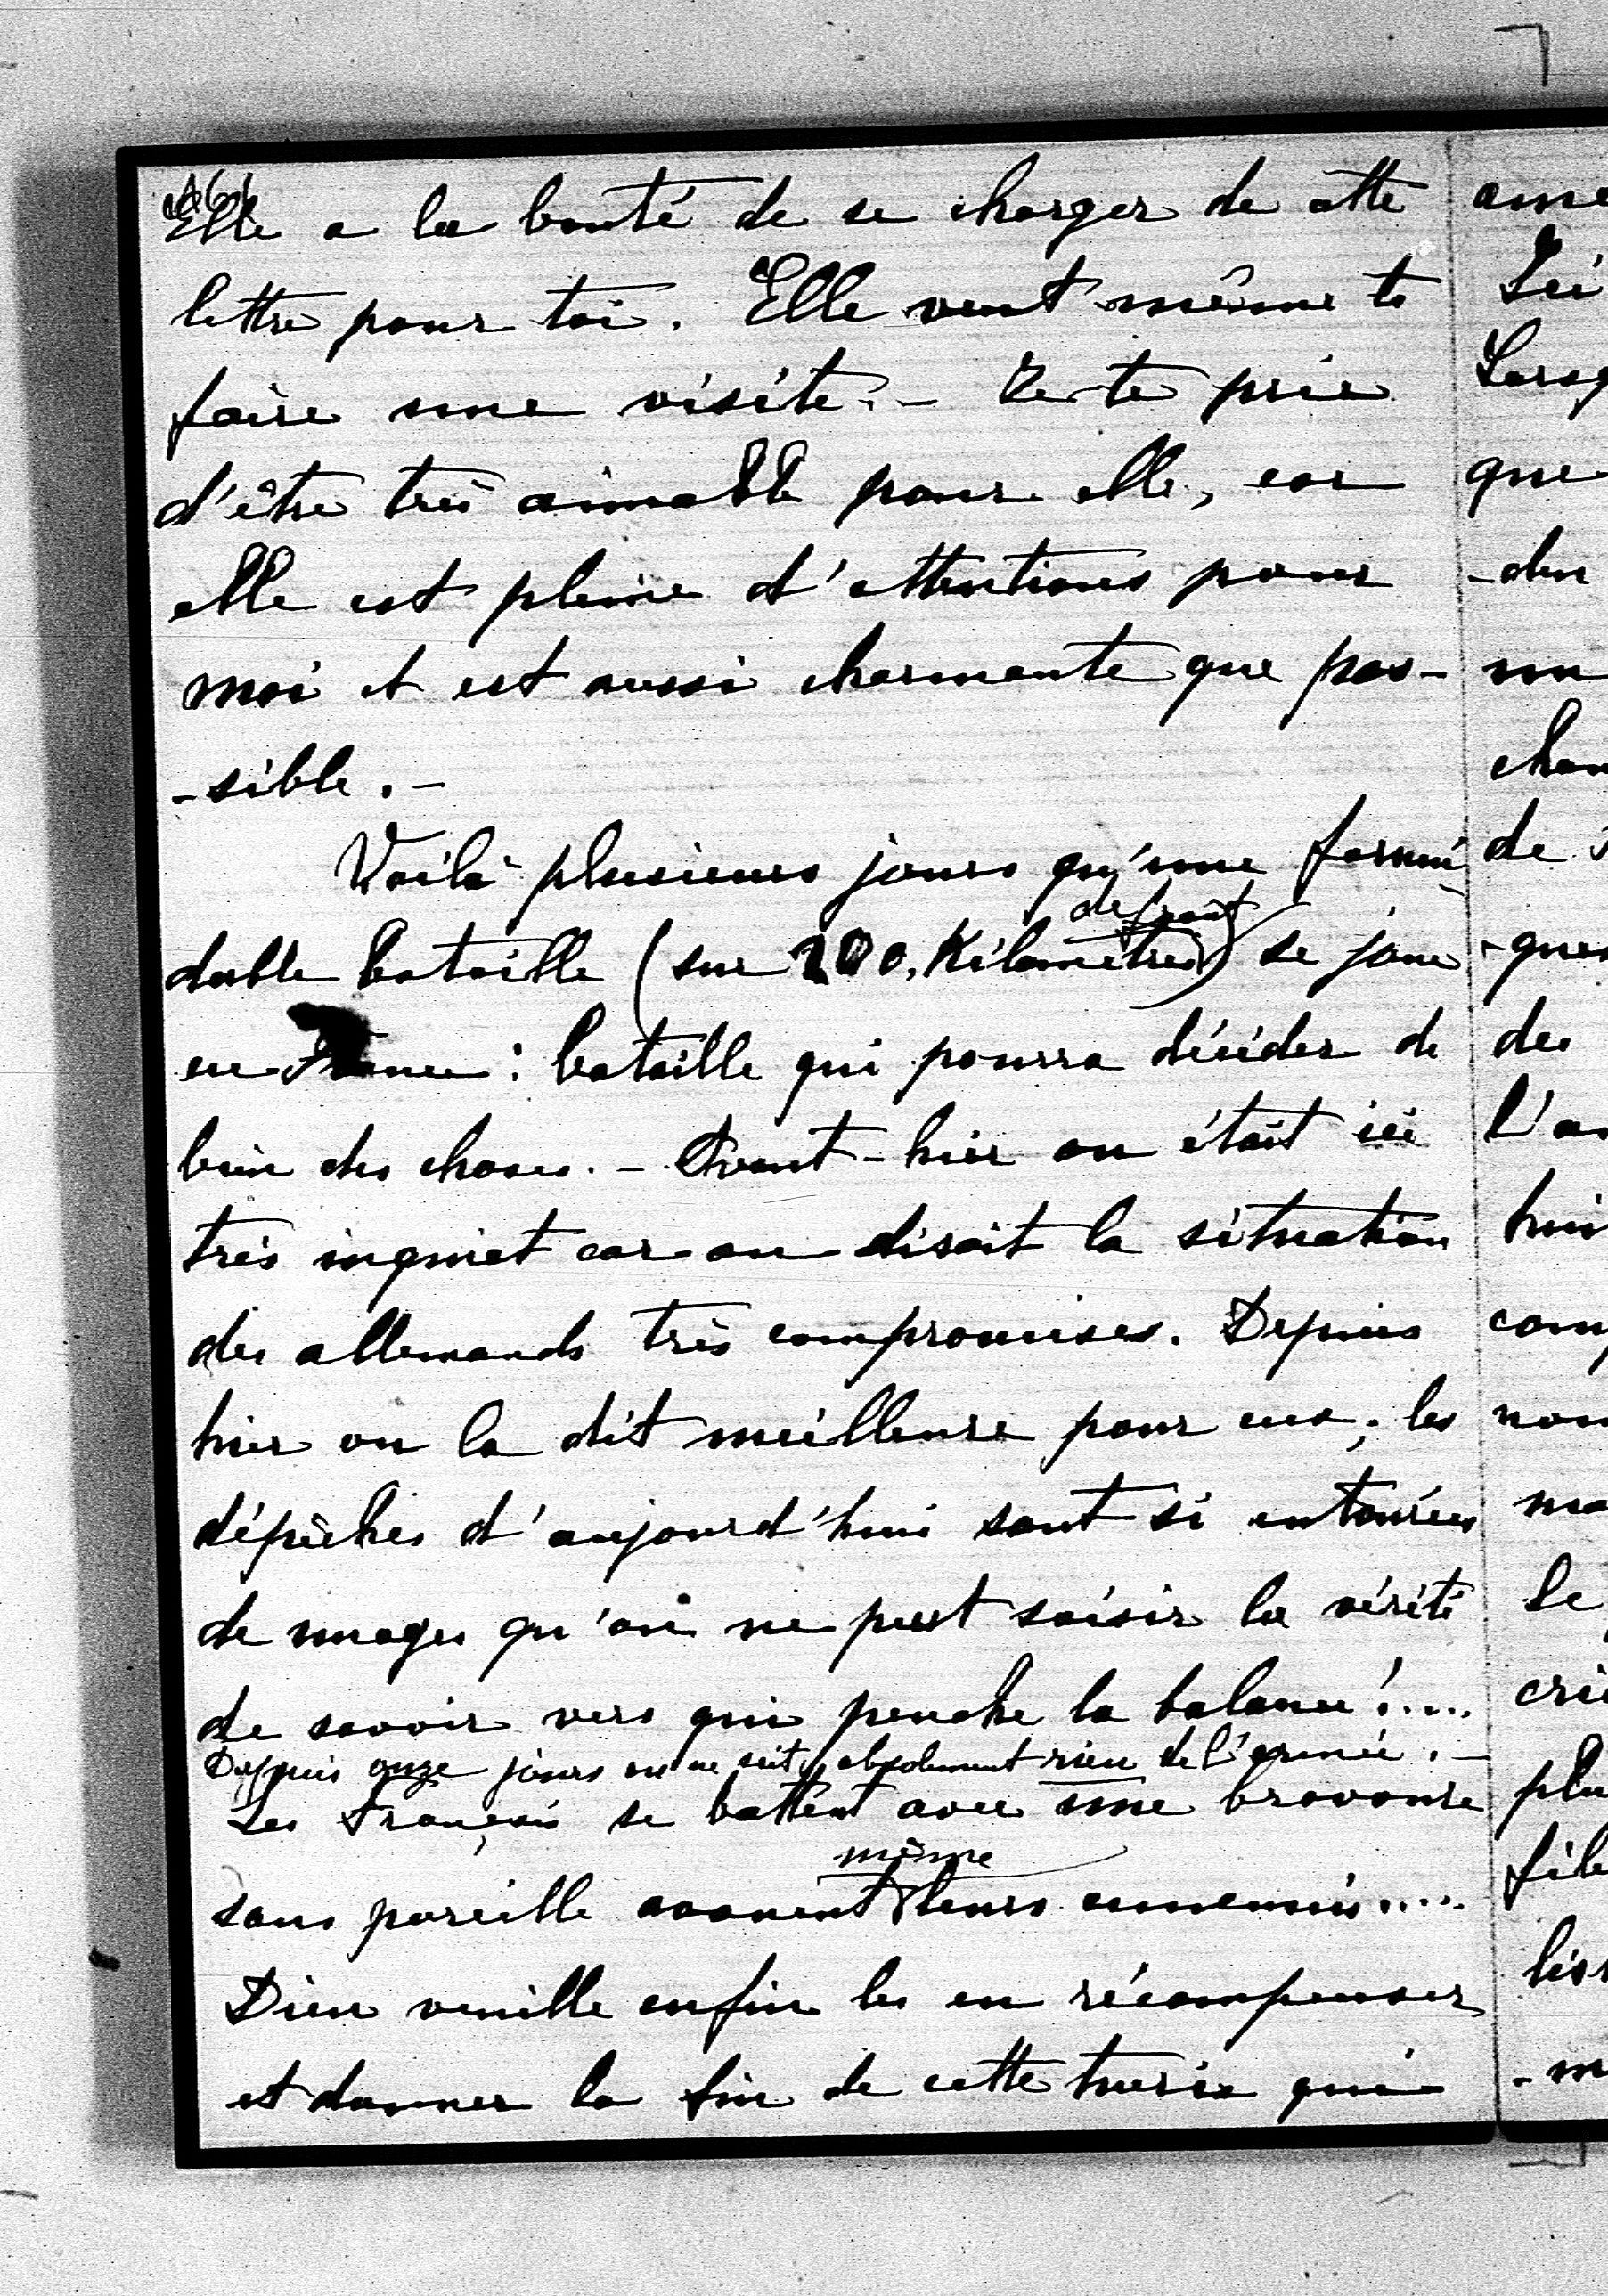 Elle a la bonté de se charger de cette
lettre pour toi. Elle veut même te
faire une visite. - Je te prie
d'être très aimable pour elle, car
elle est pleine d'attentions pour
moi et est aussi charmante que pos-
-sible. -
Voilà plusieurs jours qu'une formi
dable bataille (sur 200. Kilomètres de front) se joue
en France : bataille qui pourra décider de
bien des choses. - Avant-hier on était ici
très inquiet car on disait la situation
des allemands très compromises. Depuis
hier on la dit meilleure pour eux; les
dépêches d'aujourd'hui sont si entourées
de nuages qu'on ne peut saisir la vérité
de savoir vers qui penche la balance!....
Depuis onze jours on ne sait absolument rien de l'armée. -
Les Français se battent avec une bravoure
même
sans pareille avouent leurs ennemis....
Dieu veuille enfin les en récompenser
et donner la fin de cette tuerie qui
ame
Lorsq
que
-den
un
chan
de
-ques
des
l'an
huit
com
nou
ma
Le
cri
plu
file
liss
-m